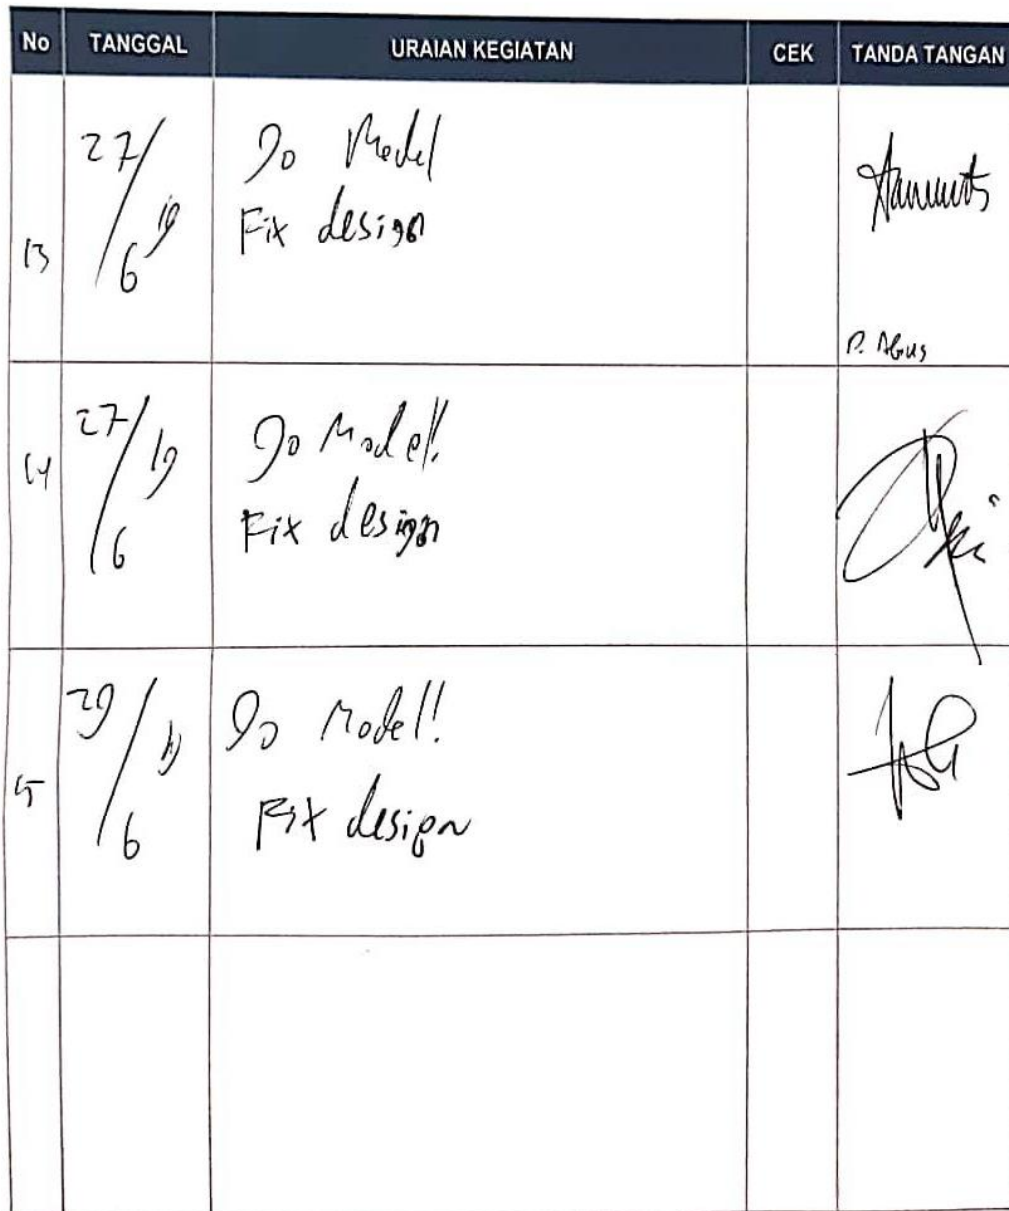 No TANGGAL URAIAN KEGIATAN CEK TANDA TANGAN
13 27/6 19 Do Model
Fix design
P. Agus
14 27/6 19 Do Model!
Fix design
15 29/6 19 Do Model!
Fix design